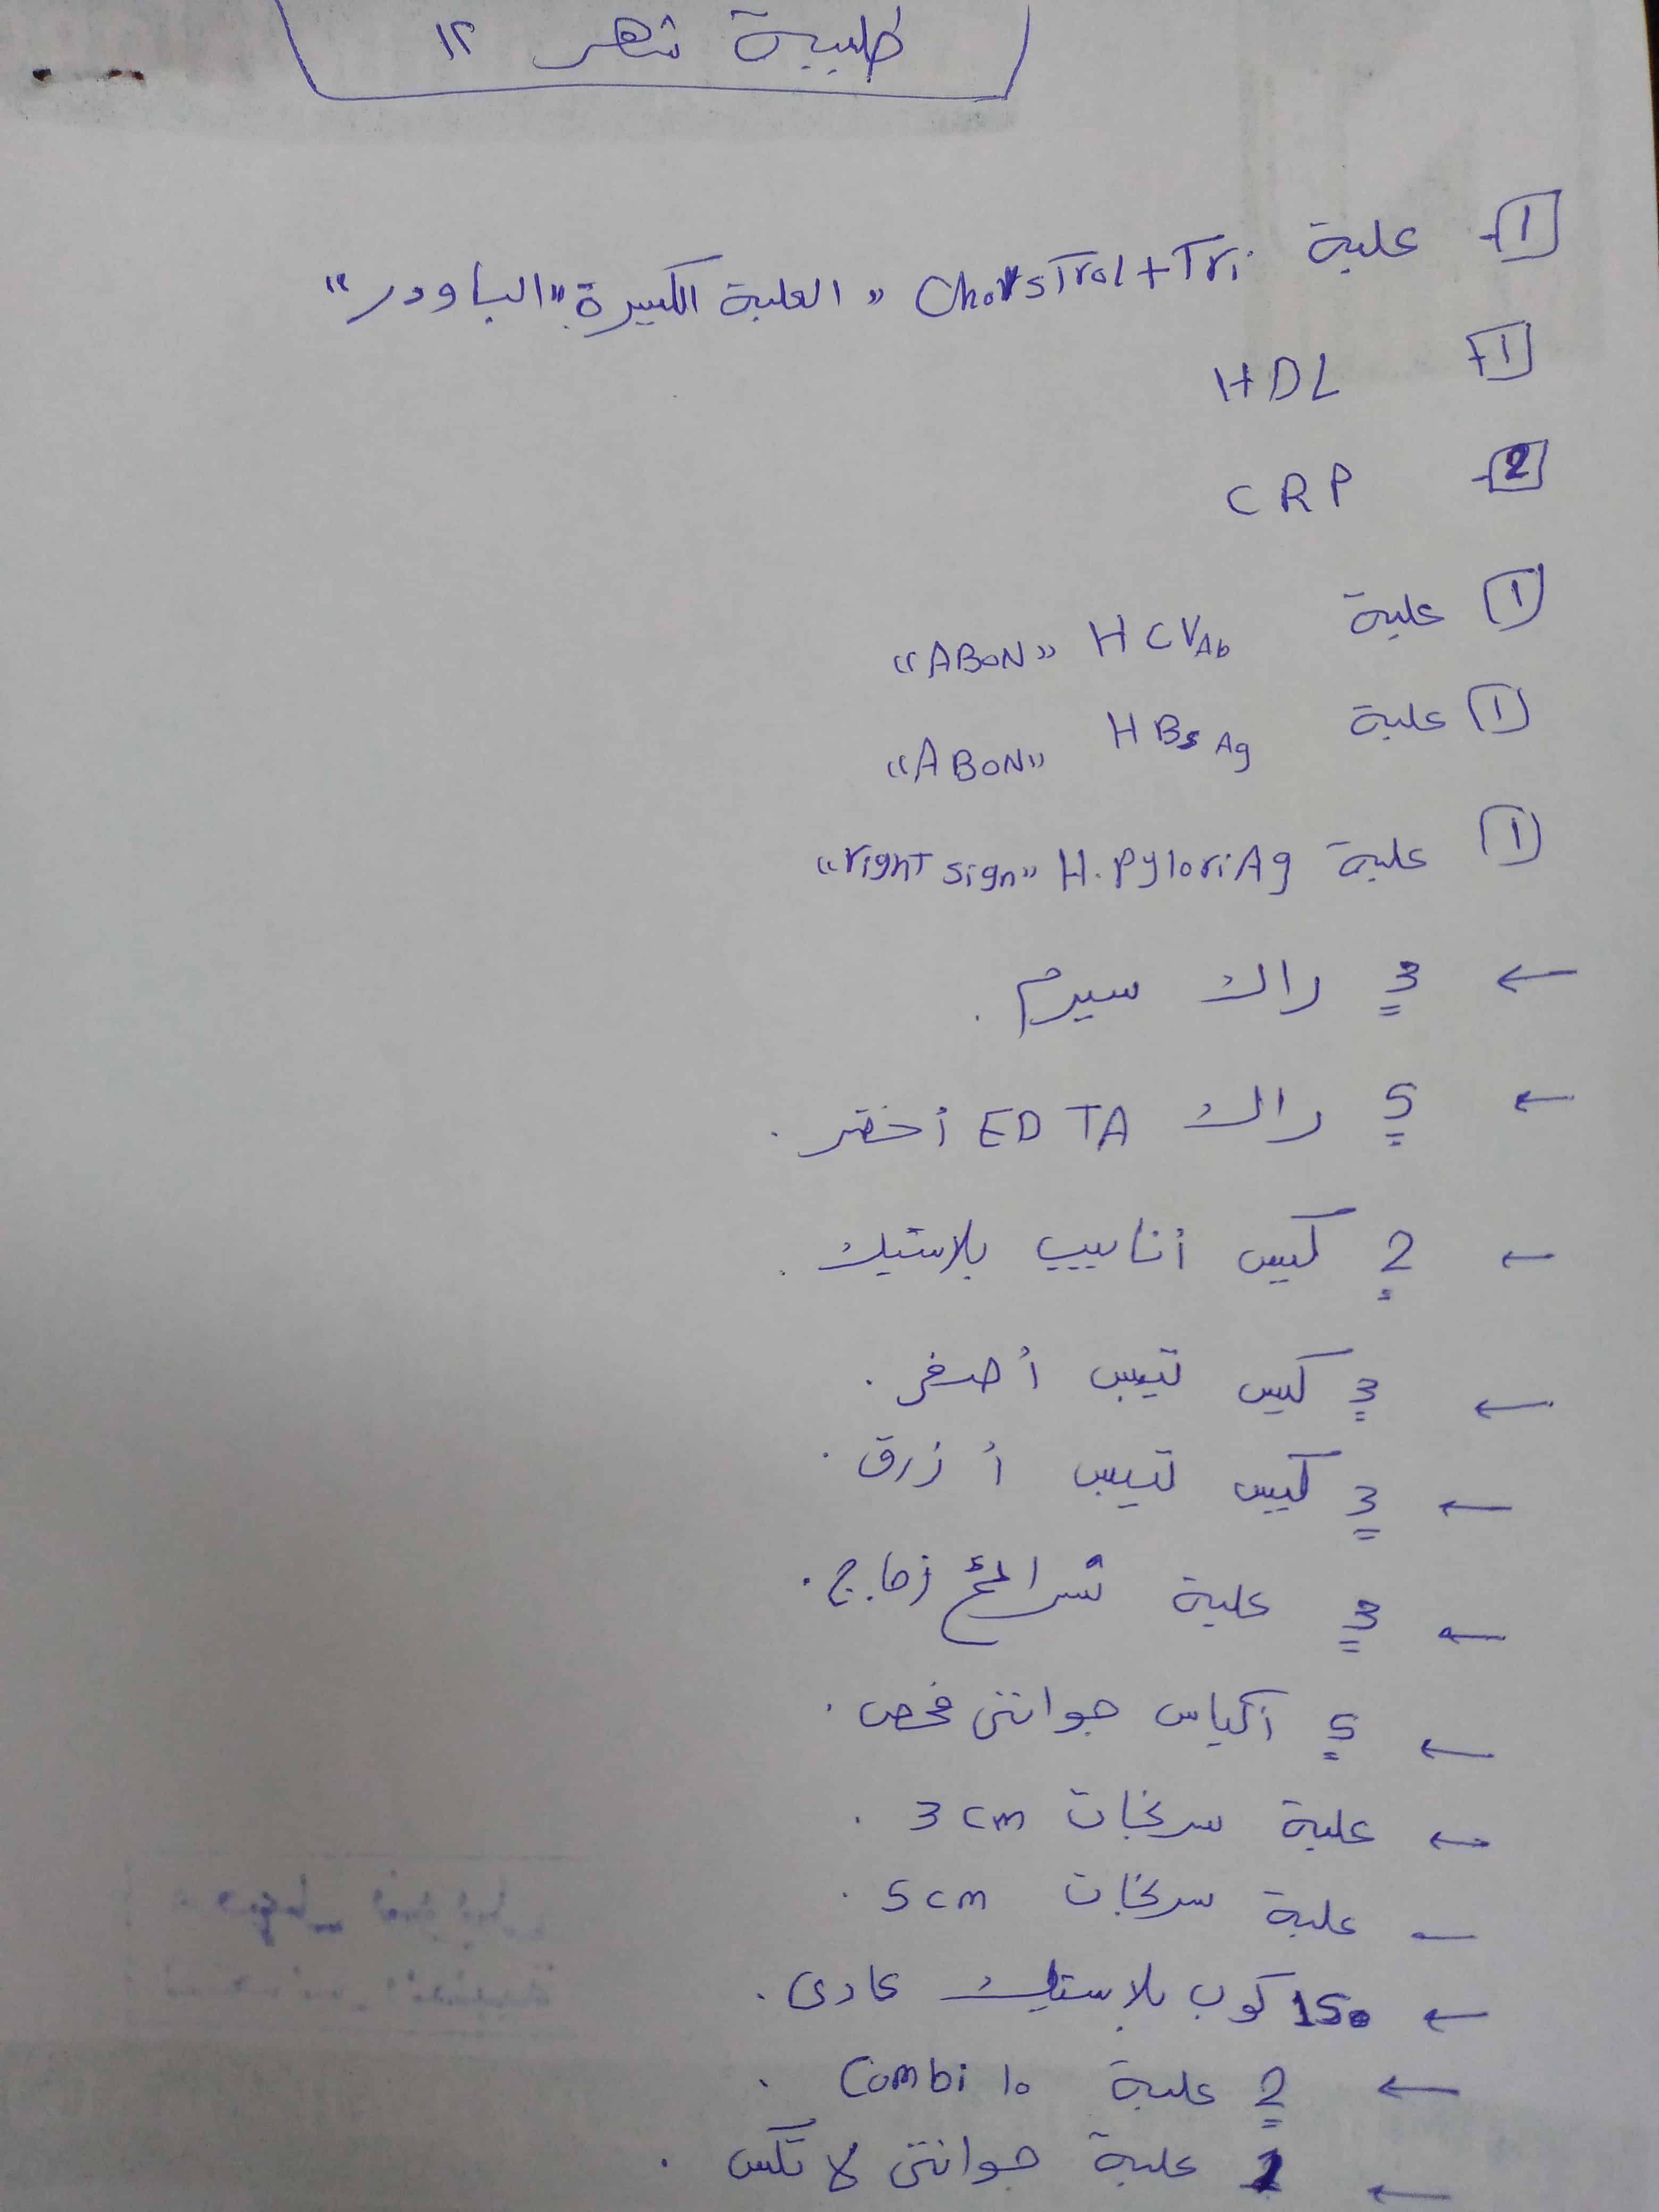 طلبية شهر ١٢
1- علبة Cholestrol + Tri "العلبة الكبيرة" "الباودر"
1- HDL
2- CRP
1 علبة HCV Ab "ABON"
1 علبة HBs Ag "ABON"
1 علبة H. pylori Ag "right sign"
← 3 راك سيرم .
← 5 راك EDTA أخضر .
← 2 كيس أنابيب بلاستيك .
← 3 كيس تيبس أصفر .
← 3 كيس تيبس أزرق .
← 3 علبة شرائح زجاج .
← 5 أكياس جوانتى فحص .
← علبة سرنجات 3 cm .
– علبة سرنجات 5 cm .
← 150 كوب بلاستيك عادى .
← 2 علبة Combi 10 .
← 1 علبة جوانتى لاتكس .